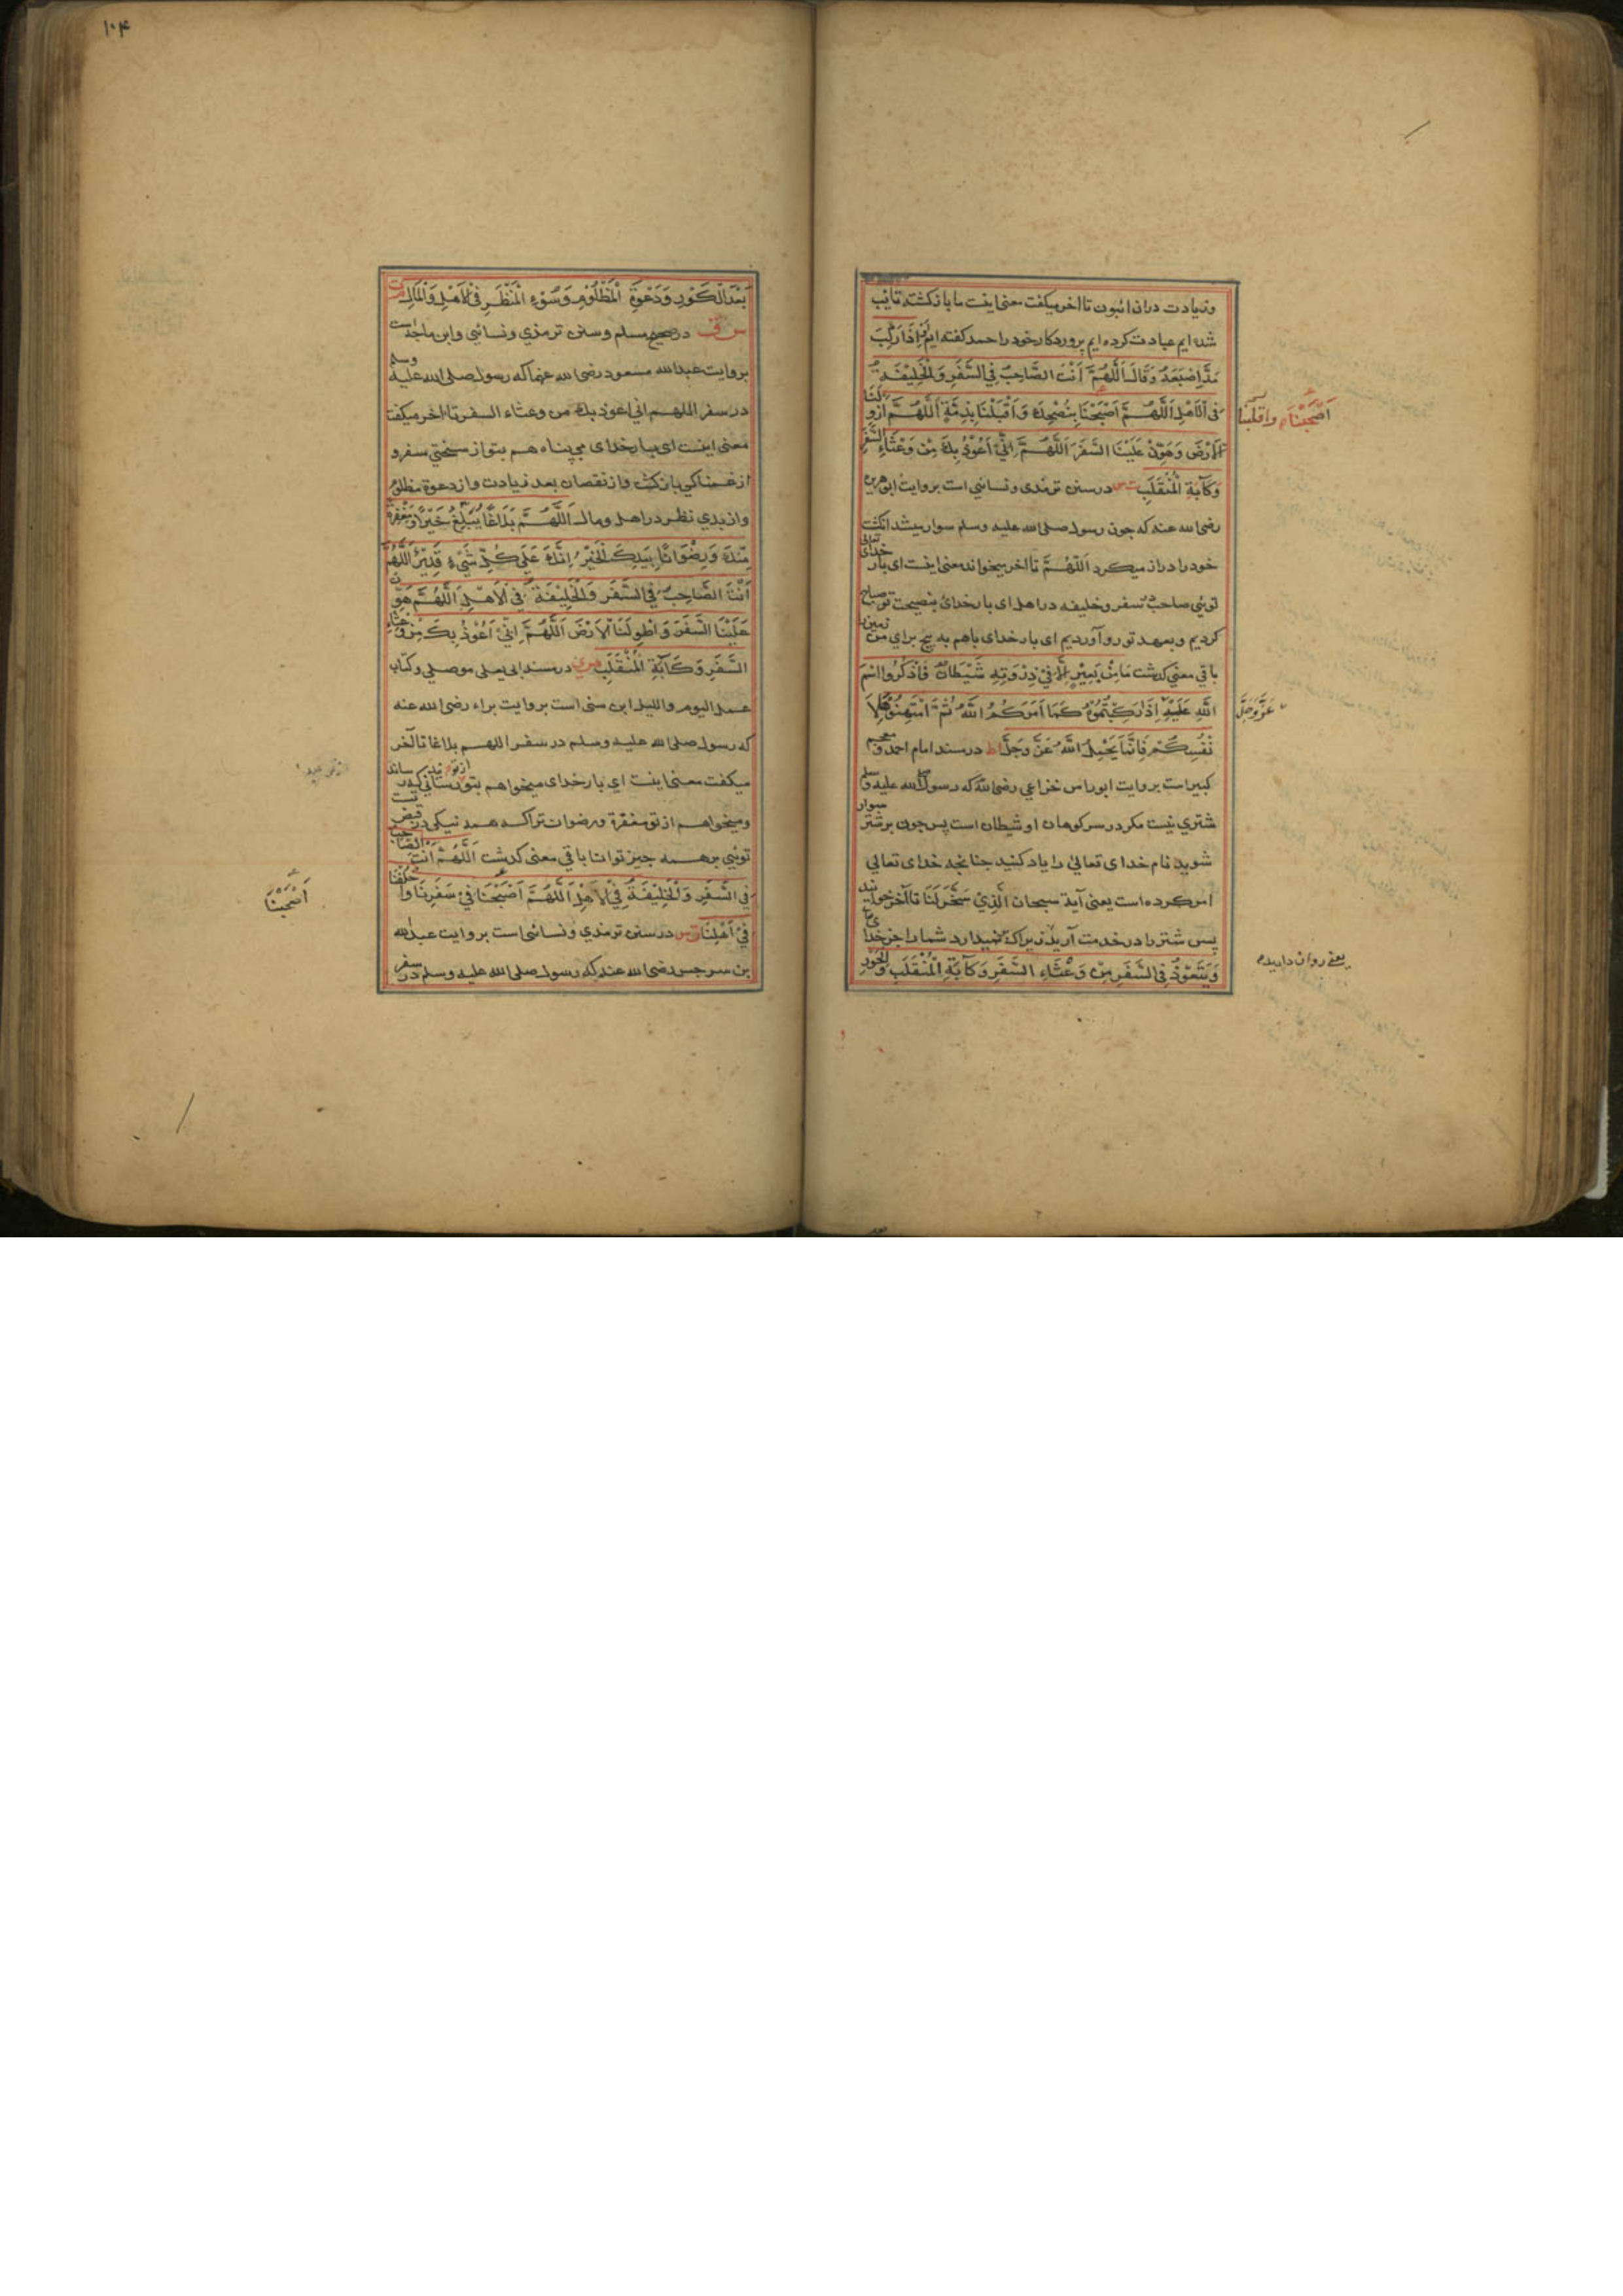 وزیادت دران ائبون تا آخر میکفت معنی اینست ما بازکشته تائب
شده ایم عبادت کرده ایم پروردکار خود را حمد کفته ایم فَاِذَا رَكِبَ
مَدَّ اِصْبَعَهُ وَقَالَ اَللّٰهُمَّ اَنْتَ الصَّاحِبُ فِي السَّفَرِ وَالْخَلِيْفَةُ
فِی الْاَهْلِ اَللّٰهُمَّ اَصْبِحْنَا بِنُصْحِكَ وَاَقْبِلْنَا بِذِمَّةٍ اَللّٰهُمَّ ازْوِ لَنَا
الْاَرْضَ وَهَوِّنْ عَلَيْنَا السَّفَرَ اَللّٰهُمَّ اِنِّيْ اَعُوْذُ بِكَ مِنْ وَعْثَاءِ السَّفَرِ
وَكَآبَةِ الْمُنْقَلَبِ ت س در سنن ترمذی ونسائی است بروایت ابو هریره
رضی الله عنه که چون رسول صلی الله علیه وسلم سوار میشد انکشت
خود را دراز میکرد اَللّٰهُمَّ تا آخر میخواند معنی اینست ای بار خدای تعالی
توئی صاحب سفر وخلیفه در اهل ای بار خدای بنصیحت تو صباح
کردیم وبعهد تو رو آوردیم ای بار خدای باهم به پیچ برای من زمین را
باقی معنی کذشت مَا مِنْ بَعِيْرٍ اِلَّا فِيْ ذِرْوَتِهِ شَيْطَانٌ فَاذْكُرُوا اسْمَ
اللّٰهِ عَلَيْهِ اِذَا رَكِبْتُمُوْهُ كَمَا اَمَرَكُمُ اللّٰهُ ثُمَّ امْتَهِنُوْهَا لِاَ
نْفُسِكُمْ فَاِنَّمَا يَحْمِلُ اللّٰهُ عَزَّ وَجَلَّ ا ط در مسند امام احمد ومعجم
کبیر است بروایت ابو راس خزاعی رضی الله که رسول الله علیه وسلم
شتری نیست مکر در سر کوهان او شیطان است پس چون بر شتر سوار
شوید نام خدای تعالی را یاد کنید چنانچه خدای تعالی
امر کرده است یعنی آیة سبحان الَّذِيْ سَخَّرَ لَنَا تا آخر خوانید
پس شتر را در خدمت آرید زیراکه نمیدارد شما را جز خدای
وَيَتَعَوَّذُ فِی السَّفَرِ مِنْ وَعْثَاءِ السَّفَرِ وَكَآبَةِ الْمُنْقَلَبِ وَالْحَوْرِ
اَصْحِبْنَا واقلبنا
عَزَّ وَجَلَّ
یعنی روان دارید
۱۰۴
بَعْدَ الْكَوْرِ وَدَعْوَةِ الْمَظْلُوْمِ وَسُوْءِ الْمَنْظَرِ فِی الْاَهْلِ وَالْمَالِ م ت
س ق در صحیح مسلم وسنن ترمذی ونسائی وابن ماجه است
بروایت عبدالله مسعود رضی الله عنهما که رسول صلی الله علیه وسلم
در سفر اللهم انی اعوذ بك من وعثاء السفر تا آخر میکفت
معنی اینست ای بار خدای می پناهم بتو از سختی سفر و
از غمناکی بازکشت واز نقصان بعد زیادت واز دعوة مظلوم
واز بدی نظر در اهل ومال اَللّٰهُمَّ بَلَاغًا يُبَلِّغُ خَيْرًا وَمَغْفِرَةً
مِّنْكَ وَرِضْوَانًا بِيَدِكَ الْخَيْرُ اِنَّكَ عَلٰی كُلِّ شَيْءٍ قَدِيْرٌ اَللّٰهُمَّ
اَنْتَ الصَّاحِبُ فِي السَّفَرِ وَالْخَلِيْفَةُ فِي الْاَهْلِ اَللّٰهُمَّ هَوِّنْ
عَلَيْنَا السَّفَرَ وَاطْوِ لَنَا الْاَرْضَ اَللّٰهُمَّ اِنِّيْ اَعُوْذُ بِكَ مِنْ وَعْثَاءِ
السَّفَرِ وَكَآبَةِ الْمُنْقَلَبِ ص ی در مسند ابی یعلی موصلی وکتاب
عمل الیوم واللیله ابن سنی است بروایت براء رضی الله عنه
که رسول صلی الله علیه وسلم در سفر اللهم بلاغا تا آخر
میکفت معنی اینست ای بار خدای میخواهم بتو رسانیدنی که رساند
ومیخواهم از تو مغفرة ورضوان تراکه همه نیکی در قبض تست
توئی بر همه چیز توانا باقی معنی کذشت اَللّٰهُمَّ اَنْتَ الصَّاحِبُ
فِي السَّفَرِ وَالْخَلِيْفَةُ فِي الْاَهْلِ اَللّٰهُمَّ اَصْبِحْنَا فِيْ سَفَرِنَا وَاخْلُفْنَا
فِيْ اَهْلِنَا ت س در سنن ترمذی ونسائی است بروایت عبدالله
بن سرجس رضی الله عنه که رسول صلی الله علیه وسلم در سفر
اَصْحِبْنَا